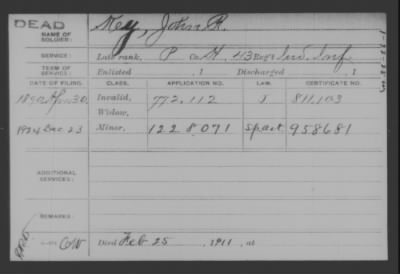 DEAD
NAME OF SOLDIER: Mey, John R.
SERVICE: Late rank, P Co. H, 43 Reg't Ind. Inf.
TERM OF SERVICE: Enlisted , 1 Discharged , 1
DATE OF FILING. CLASS. APPLICATION NO. LAW. CERTIFICATE NO.
1890 Apr 30. Invalid, 772.112 811,103
Widow,
1924 Dec 23 Minor, 1228,071 Spact 958681
ADDITIONAL SERVICES:
REMARKS:
C.W. Died Feb 25, 1911, at